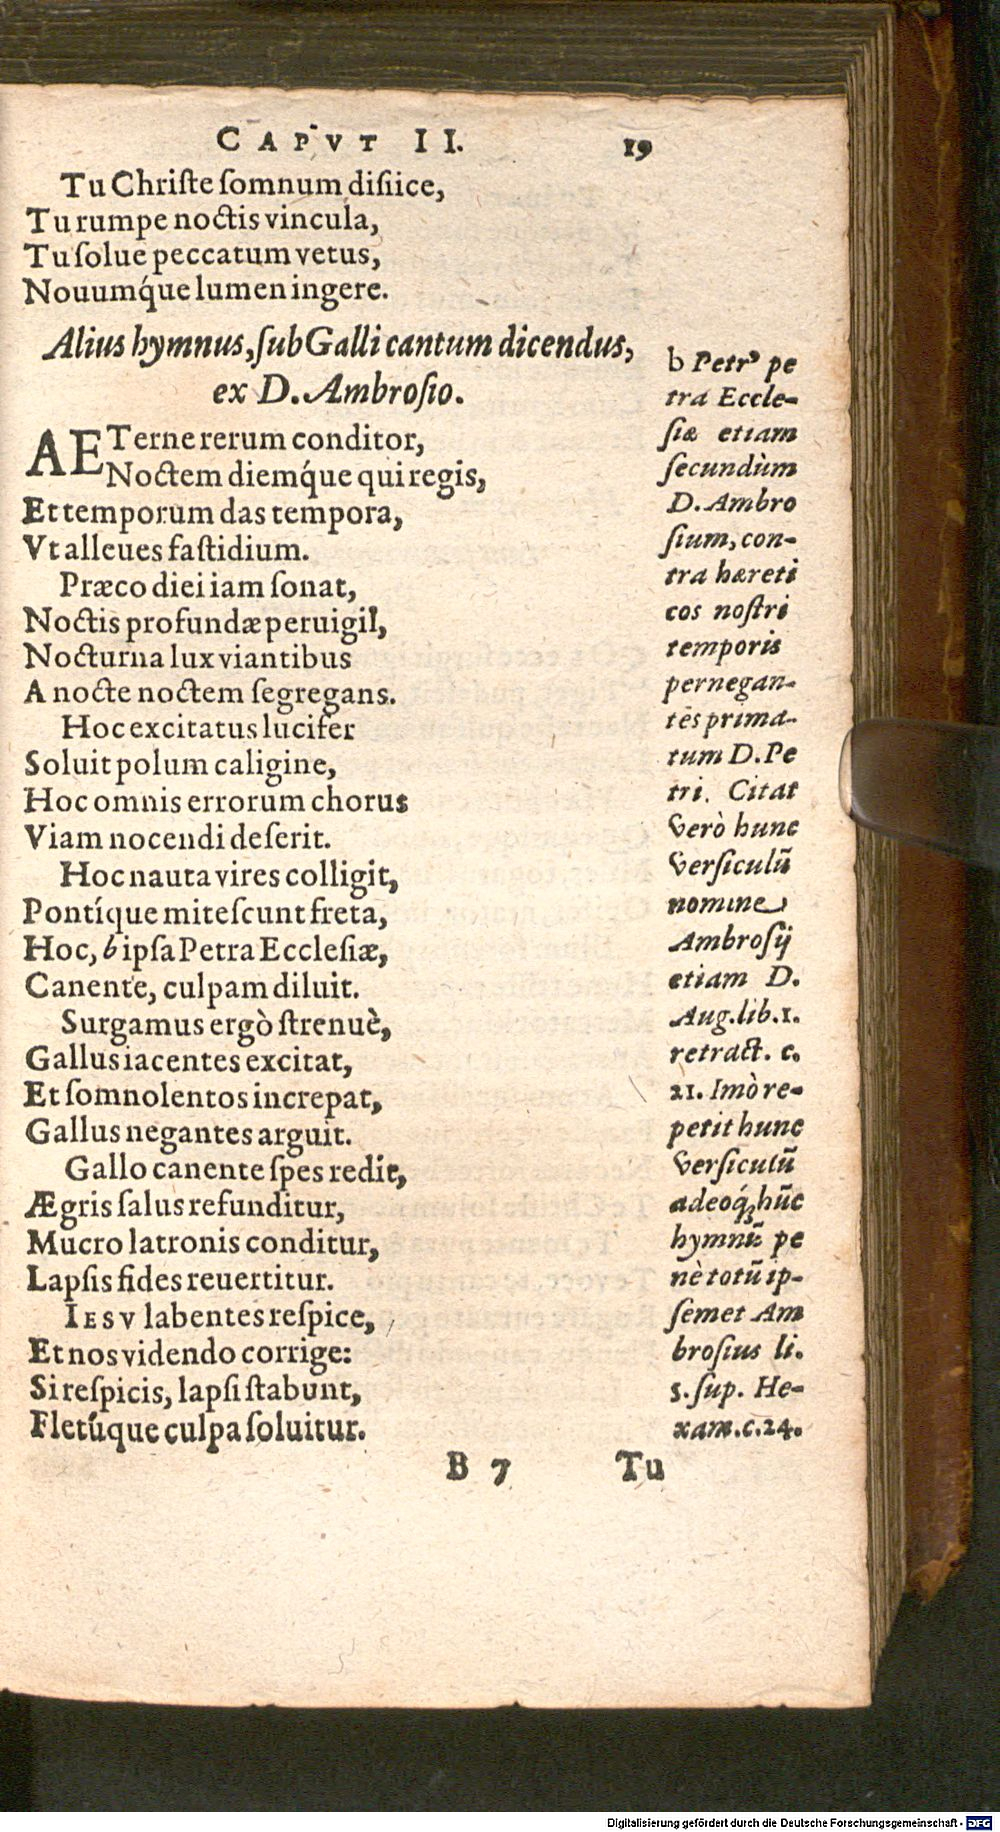 CAPVT II. 19
Tu Christe somnum disiice,
Tu rumpe noctis vincula,
Tu solue peccatum vetus,
Nouumq́ue lumen ingere.
Alius hymnus, sub Galli cantum dicendus,
ex D. Ambrosio.
AETerne rerum conditor,
Noctem diemq́ue qui regis,
Et temporum das tempora,
Vt alleues fastidium.
Præco diei iam sonat,
Noctis profundæ peruigil,
Nocturna lux viantibus
A nocte noctem segregans.
Hoc excitatus lucifer
Soluit polum caligine,
Hoc omnis errorum chorus
Viam nocendi deserit.
Hoc nauta vires colligit,
Pontíque mitescunt freta,
Hoc, b ipsa Petra Ecclesiæ,
Canente, culpam diluit.
Surgamus ergò strenuè,
Gallus iacentes excitat,
Et somnolentos increpat,
Gallus negantes arguit.
Gallo canente spes redit,
Ægris salus refunditur,
Mucro latronis conditur,
Lapsis fides reuertitur.
IESV labentes respice,
Et nos videndo corrige:
Si respicis, lapsi stabunt,
Fletúque culpa soluitur.
b Petrꝰ pe
tra Eccle-
siæ etiam
secundùm
D. Ambro
sium, con-
tra hæreti
cos nostri
temporis
pernegan-
tes prima-
tum D. Pe
tri. Citat
verò hunc
versiculũ
nomine
Ambrosij
etiam D.
Aug. lib. 1.
retract. c.
21. Imò re-
petit hunc
versiculũ
adeoq́; hũc
hymnũ pe
nè totũ ip-
semet Am
brosius li.
5. sup. He-
xam. c. 24.
B 7 Tu
Digitalisierung gefördert durch die Deutsche Forschungsgemeinschaft - DFG